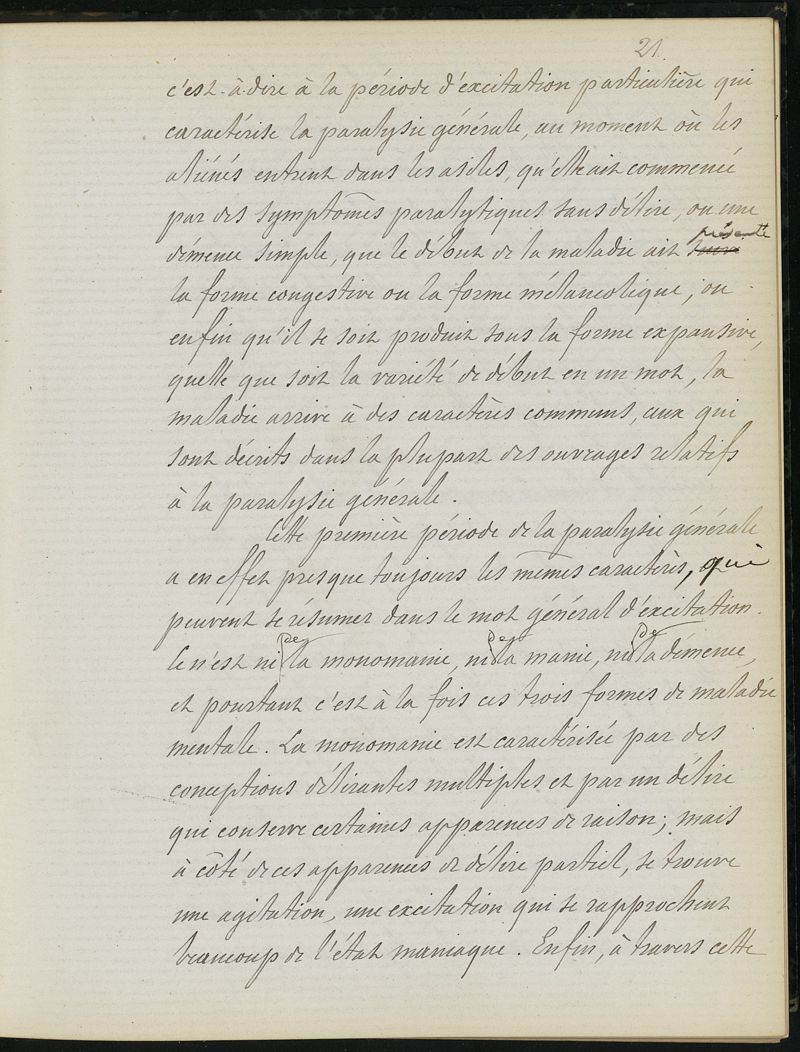 21.
c'est-à-dire à la période d'excitation particulière qui
caractérise la paralysie générale, au moment où les
aliénés entrent dans les asiles, qu'elle ait commencé
par des symptômes paralytiques sans délire, ou une
démence simple, que le début de la maladie ait présenté
la forme congestive ou la forme mélancolique, ou
enfin qu'il se soit produit sous la forme expansive,
quelle que soit la variété de début en un mot, la
maladie arrive à des caractères communs, ceux qui
sont décrits dans la plupart des ouvrages relatifs
à la paralysie générale.
Cette première période de la paralysie générale
a en effet presque toujours les mêmes caractères, qui
peuvent se résumer dans le mot général d'excitation.
Ce n'est ni de la monomanie, ni de la manie, ni de la démence,
et pourtant c'est à la fois ces trois formes de maladie
mentale. La monomanie est caractérisée par des
conceptions délirantes multiples et par un délire
qui conserve certaines apparences de raison; mais
à côté de ces apparences de délire partiel, se trouve
une agitation, une excitation qui se rapprochent
beaucoup de l'état maniaque. Enfin, à travers cette